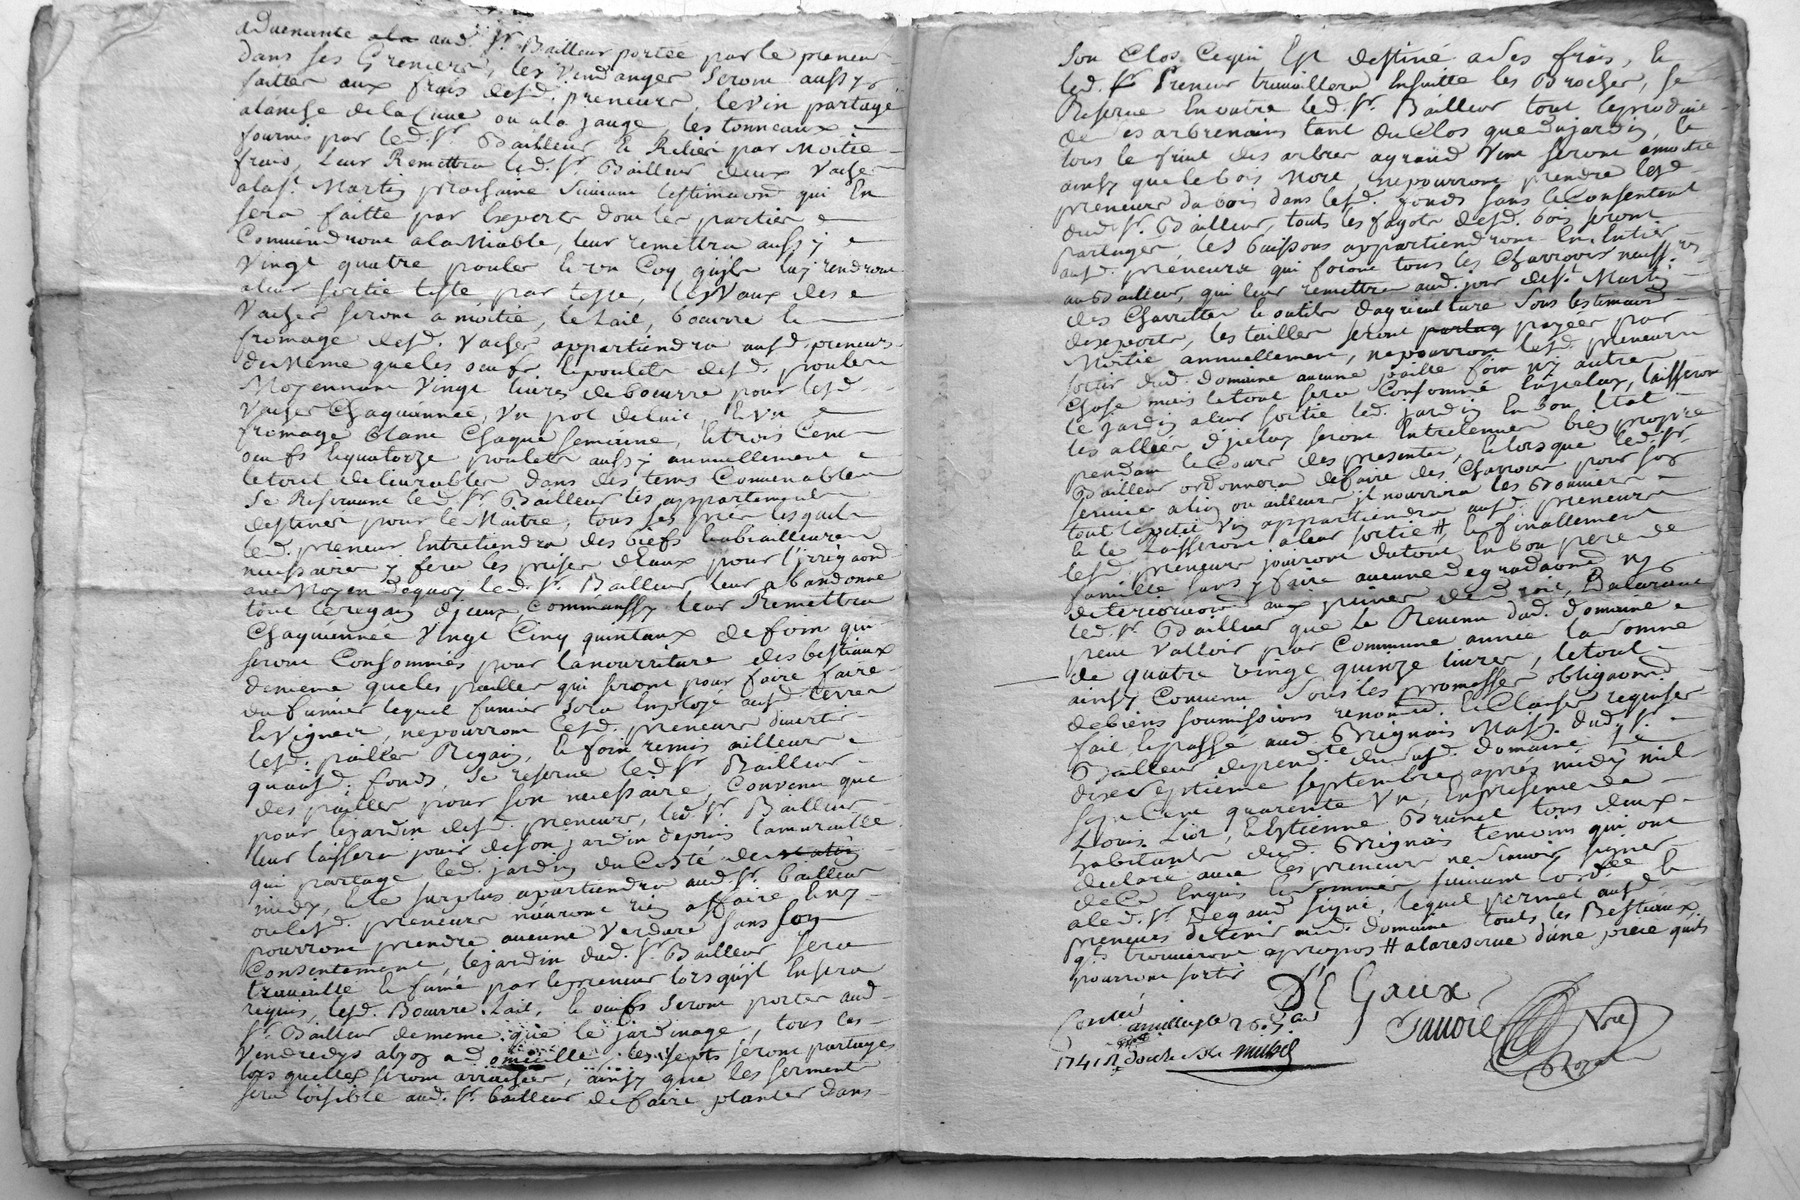 aduenante a la aud. Sr. Bailleur portée par le preneur
dans ses Greniers, les Vendanges seront aussy
faittes aux frais desd. preneurs, le vin partagé
alanche de la Cuue ou a la jauge, les tonneaux
fournis par led. Sr. Bailleur & Reliés par Moitié
frais, Leur Remettra led. Sr. Bailleur deux Vaches
a la St. Martin prochaine suiuant l'estimaond. qui En
sera faitte par Experts dont les parties
Conuiendront a la Miable, leur remettra aussy
Vingt quatre poules & un Coq qu'ils luy rendront
a leur sortie teste par teste, les Vaux des
Vaches seront a moitié, le Lait, bourre &
fromage desd. Vaches appartiendra ausd. preneurs
de Meme que les oeufs & poulets desd. poules
Moyennant Vingt liures de bourre pour lesd.
Vaches Chaquannée, Un pot de lait, & Un
fromage blanc Chaque semaine, & trois Cent
oeufs & quatorze poulets aussy annuellement
le tout deliurables dans des tems Conuenables
Se Reseruant led. Sr. Bailleur les appartements
destinés pour le Maitre, tous ses prés lesquels
led. preneur Entretiendra des biefs &
necessaires y fera les prises d'Eaux pour l'irrigaond.
au Moyen dequoy led. Sr. Bailleur leur abandonne
tout le regain d'jceux, Commaussy leur Remettra
Chaquannée Vingt Cinq quintaux de foin qui
seront Consommés pour la nourriture des bestiaux
de meme que les pailles qui seront pour faire faire
du fumier lequel fumier sera Employé ausd. terres
& Vignes, ne pourront lesd. preneurs diuertir
lesd. pailles Regain, & foin remis ailleurs
quausd. fonds, se reserue led. Sr. Bailleur
des pailles pour son necessaire, Conuenu que
pour le jardin desd. preneurs, led. Sr. Bailleur
leur laissera jouir de son jardin depuis la muraille
qui partage led. jardin du Costé de matin
midy, & le surplus apartiendra aud. Sr. bailleur
ou lesd. preneurs n'auront rien affaire & ny
pourront prendre aucune Verdure sans son
Consentement, le jardin dud. Sr. Bailleur sera
trauaillé & fumé par le preneur lorsqu'jl En sera
requis, lesd. Bourre Lait, & oeufs seront portés aud.
Sr. Bailleur de meme que le jardinage, tous les
Vendredys a Lyon a domicille, les septs seront partagés
lors quelles seront arrachées, ainsy que les serments
sera loisible aud. Sr. bailleur de faire planter dans
Son Clos Cequi Est destiné a ses frais, &
led. Sr. Preneur trauaillera Ensuitte les Brocher, se
Reserue En outre led. Sr. Bailleur tout le produit
de ses arbrenains tant du Clos que du jardin, &
tous le fruit des arbres a grand Vent seront a moitié
ainsy que le bois Mort, ne pourront prendre lesd.
preneurs du bois dans lesd. fonds sans le Consentent.
dud. Sr. Bailleur, touts les fagots desd. bois seront
partagés, les buissons appartiendront En Entier
ausd. preneurs qui feront tous les Charrois necess.res
au Bailleur, qui leur remettra aud. jour de St. Martin
des Charrettes & outils d'agriculture sous l'estimaond.
d'experts, les tailles seront partag payées par
Moitié annuellement, ne pourront lesd. preneurs
sortir dud. domaine aucune paille foin ny autre
Chose mais le tout sera Consommé En jceluy, laisseront
le jardin a leur sortie led. jardin En bon Etat
les allées d'jceluy seront Entretenues bien propre
pendant le Cours des presentes, & lorsque led. Sr.
Bailleur ordonnera de faire des Charrois pour son
seruice a Lion ou ailleurs jl nourrira les Bouuiers
tout le petit Vin appartiendra ausd. preneurs
& le Laisseront a leur sortie # & finallement
lesd. preneurs jouiront du tout En bon pere de
famille sans y faire aucune degradaond. ny
deterioraond. aux peines de droit, Declarant
led. Sr. Bailleur que le Reuenu dud. domaine
peut Valloir par Commune année la somme
de quatre vingt quinze liures, le tout
ainsy Conuenu sous les promesses obligaond.
de biens soumissions renonciaond. & Clauses requises
fait & passé aud. Brignais Maison dud. Sr.
Bailleur depend.te dud. domaine Le
dixseptieme septembre apres midy mil
sept Cent quarente Un, En presence de
Louis Liot, & Estienne Brunet tous deux
habitants dud. Brignais temoins qui ont
declaré auec les preneurs ne sauoir signer
de Ce Enquis & sommés suiuant l'ord.ce &
a led. Sr. Degaux signé, lequel permet ausd.
preneurs de tenir aud. domaine touts les Bestiaux
q'ls trouueront a propos # a la reserue d'une piece qu'ils
pourront sortir
DE Gaux
Sauoie Nre
Royal
Conllé
1741 Rt. douze sols